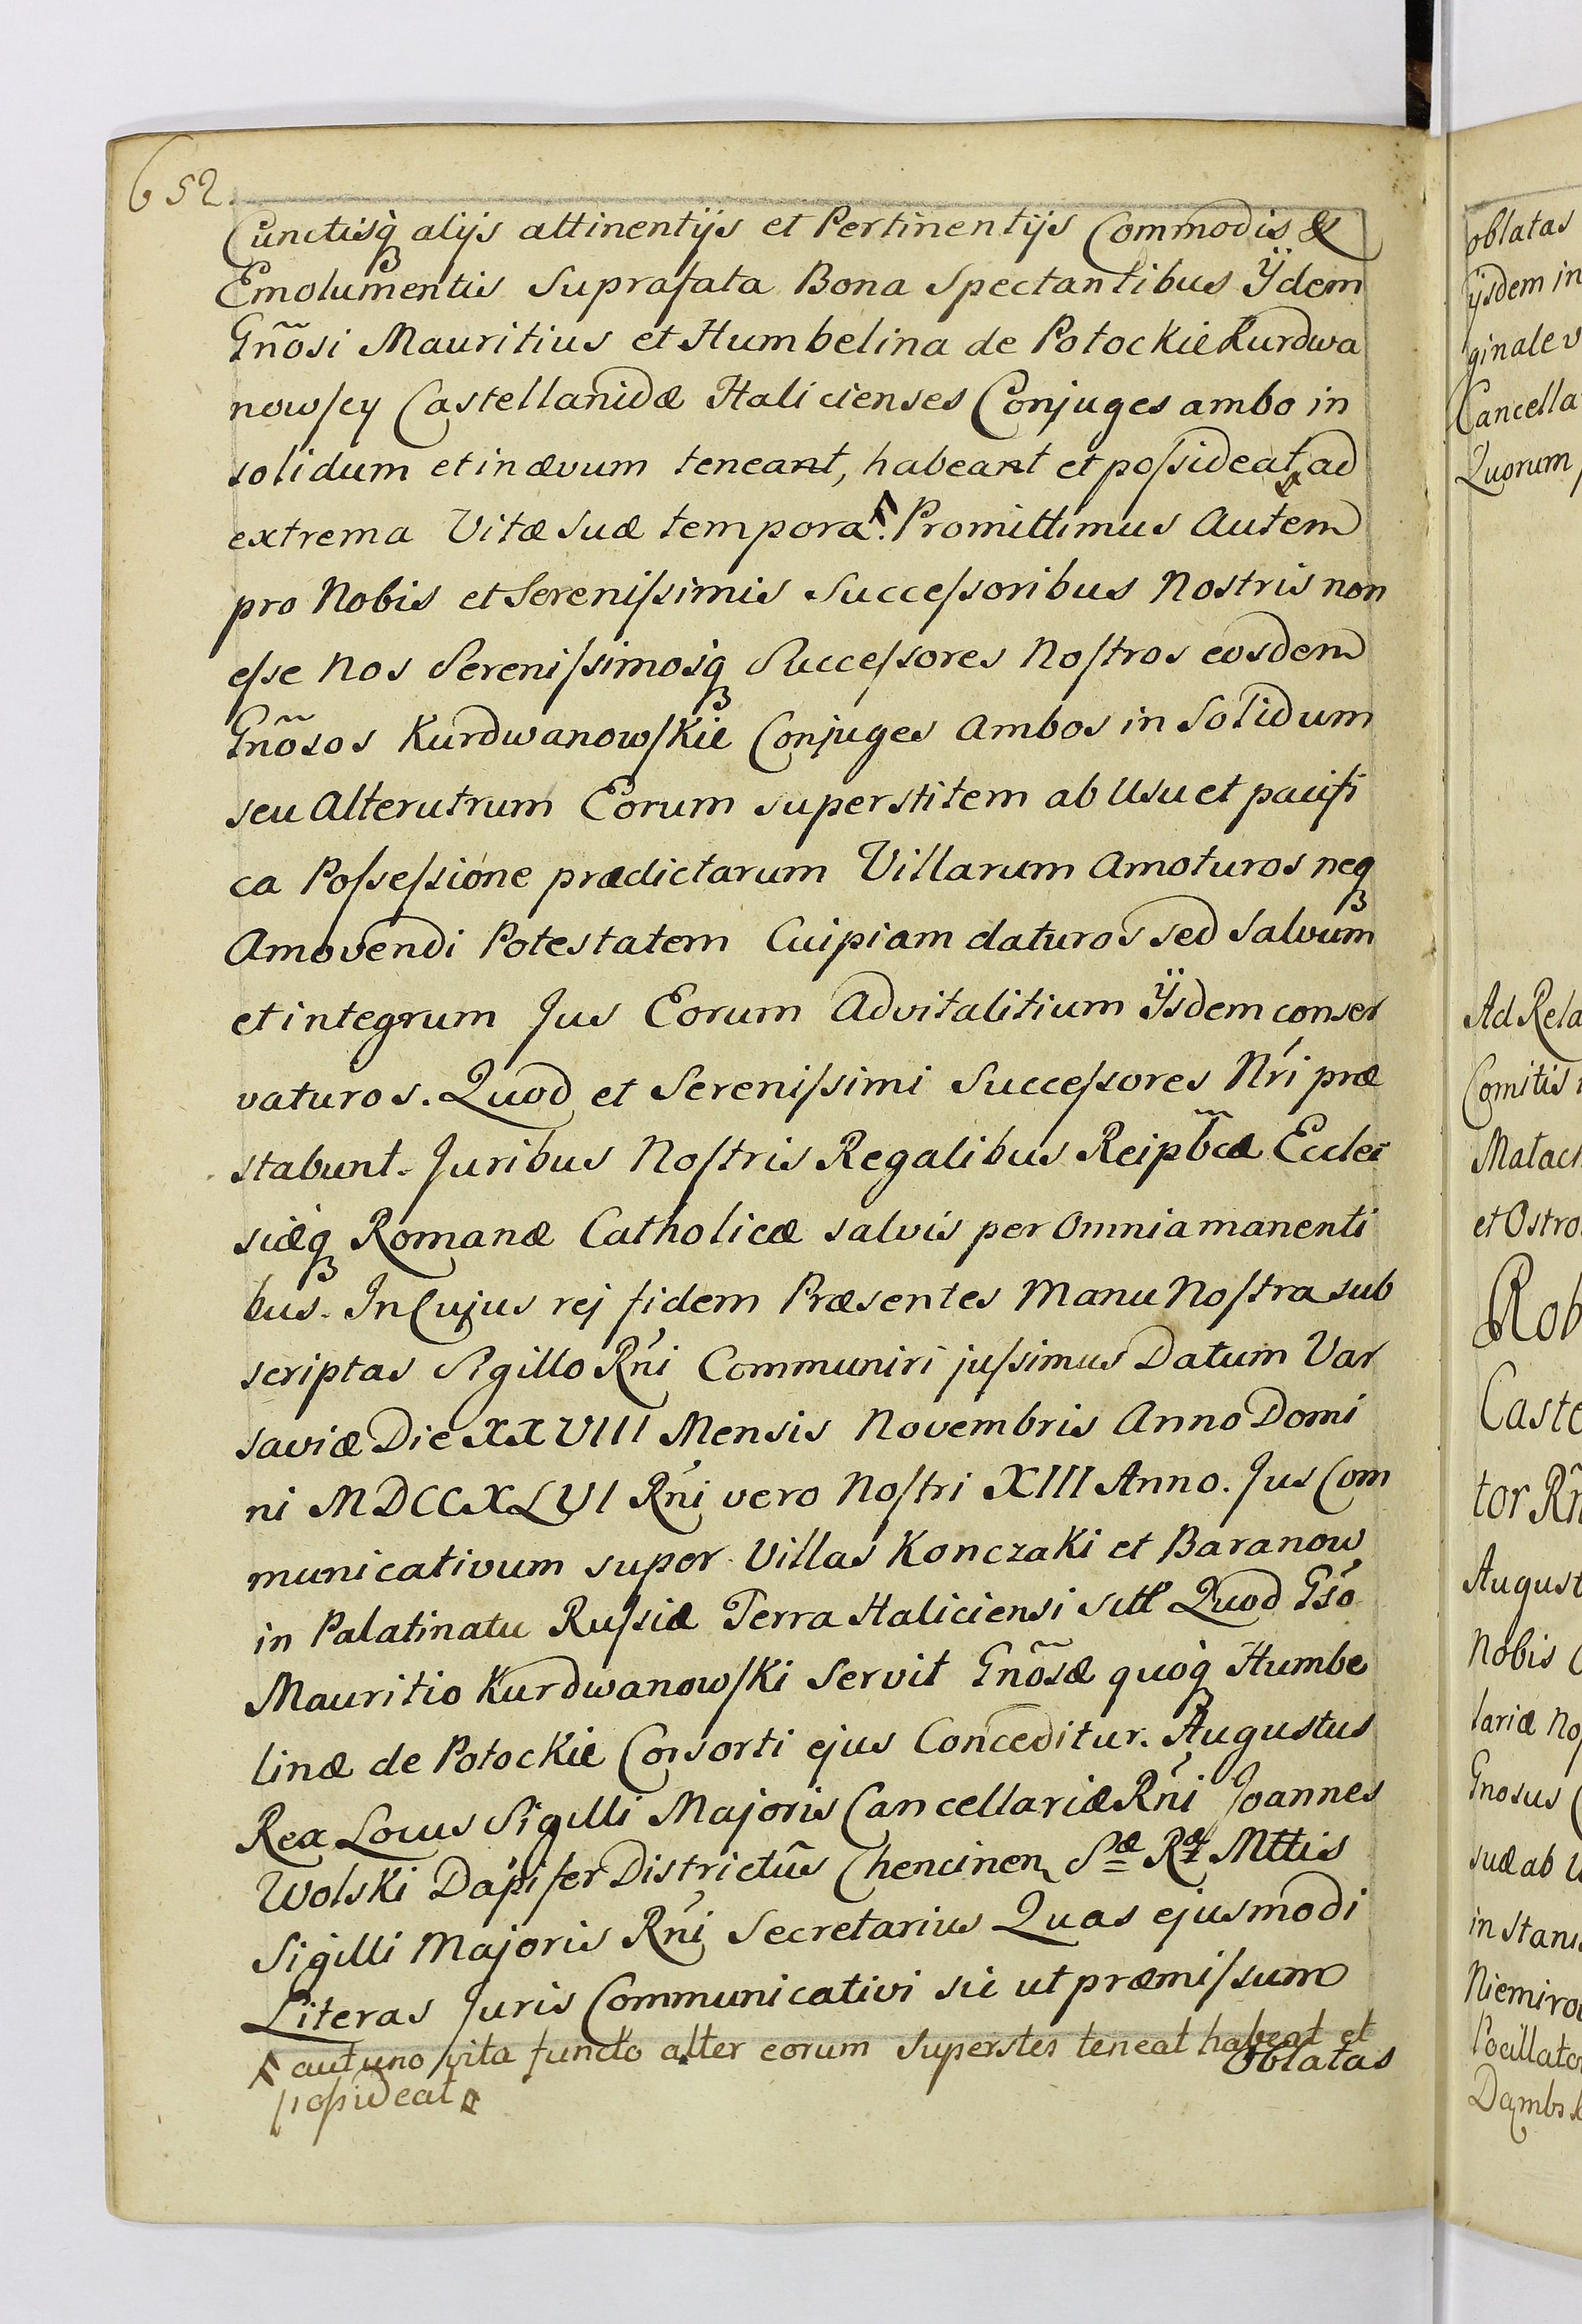 652.
Cunctisq̀ȝ alijs attinentijs et Pertinentijs Commodis &
Emolumentis Suprafata Bona Spectantibus Ÿdem
Gñõsi Mauritius et Humbelina de Potockie Kurdwa
nowſcy Castellanidæ Halicienses Conjuges ambo in
solidum et in ævum teneant, habeant et poſsideat ad
extrema Vitæ suæ tempora. Promittimus Autem
pro Nobis et Sereniſsimis Succeſsoribus Nostris non
eſse Nos Sereniſsimosq̀ȝ Succeſsores Noſtros eosdem
Gñõsos Kurdwanowſkie Conjuges Ambos in Solidum
seu Alterutrum Eorum superstitem ab Usu et pacifi
ca Poſseſsione prædictarum Villarum Amoturos neqȝ
Amovendi Potestatem Cuipiam daturos sed Salvum
et integrum Jus Eorum Advitalitium Ÿsdem conser
vaturos. Quod et Sereniſsimi Succeſsores Nŕi præ
stabunt. Juribus Noſtris Regalibus Reipb̃cæ Eccle
siæq̀ȝ Romanæ Catholicæ salvis per Omnia manenti
bus. In Cujus rej fidem Præsentes Manu Noſtra sub
scriptas Sigillo Rńi Communiri juſsimus Datum Var
saviæ Die XXVIII Mensis Novembris Anno Domi
ni MDCCXLVI Rńi vero Noſtri XIII Anno. Jus Com
municativum super Villas Konczaki et Baranow
in Palatinatu Ruſsiæ Terra Haliciensi sitt Quod Gśo
Mauritio Kurdwanowſki Servit Gñõsæ quoq̀ȝ Humbe
linæ de Potockie Consorti ejus Conceditur. Augustus
Rex Locus Sigilli Majoris Cancellariæ Rńi Joannes
Wolski Dapifer Districtûs Chencinen Sæ Ræ Mttis
Sigilli Majoris Rńi Secretarius Quas ejusmodi
Literas Juris Communicativi sic ut præmiſsum
aut uno vita functo alter eorum Superstes teneat habeat et
oblatas
poſsideat
oblatas
ijsdem in
ginale v
Cancella
Quorum
Ad Rela
Comitis
Matach
et Ostro
Rob
Caste
tor Rñ
August
Nobis
lariæ Noſ
Gnosus
suæ ab U
in Stanis
Niemirow
Pocillator
Dambs